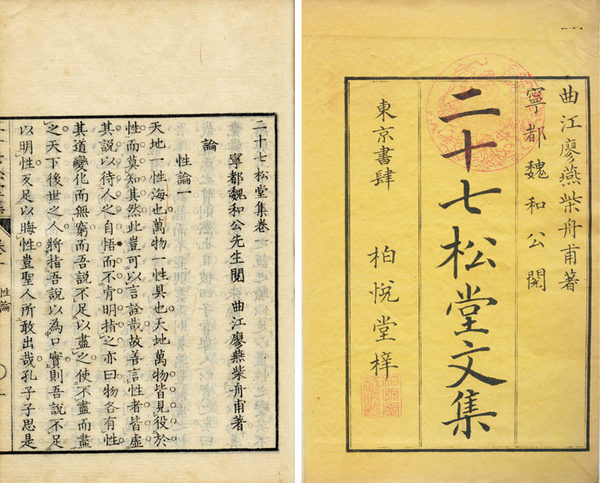 曲江廖燕柴舟甫著
寧都魏和公閱
二十七松堂文集
東京書肆
柏悅堂梓
二十七松堂集卷
寧都魏和公先生閱 曲江廖燕柴舟甫著
論
性論一
天地一性海也萬物一性具也天地萬物皆見役於
性而莫知其然此豈可以言詮哉故善言性者皆虛
其說以待人之自悟而不肯明指之亦曰物各有性
其道變化而無窮而吾說不足以盡之使不盡而盡
之天下後世之人將指吾說以為口實則吾說不足
以明性反足以晦性豈聖人所敢出哉孔子子思是
性論